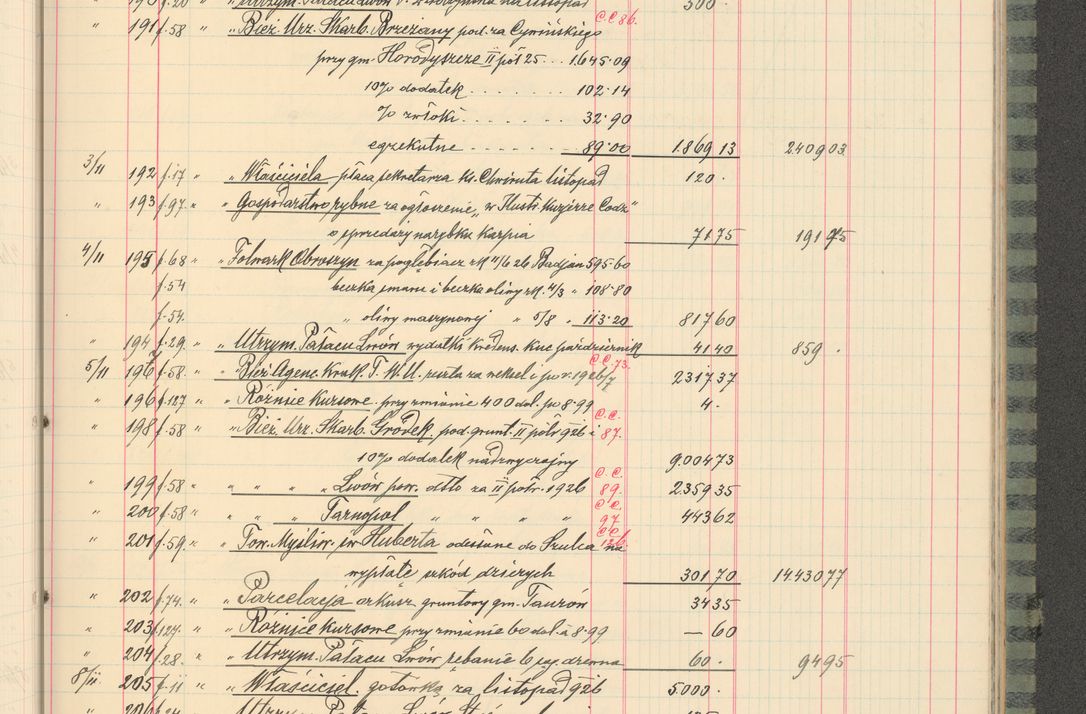 190 f.20 " " Utrzym. Pałacu Lwów listopad 500 .
" 191 f.58 " " Bież. Urz. Skarb. Brzeżany pod. za Cywińskiego C.C 86.
przy gm. Horodyszcze II pół 25 . . . 1645.09
10% dodatek . . . . . . . 102.14
% zwłoki . . . . . . . 32.90
egzekutne . . . . . . . 89.00 1869 13 2409 03
3/11 192 f.17 " " Właściciela płaca sekretarza Ks. listopad 120 .
" 193 f.97. " " Gospodarstwo rybne za ogłoszenie " w Ilustr. Kurjerze Codz"
o sprzedaży narybku Karpia 71 75 191 75
4/11 195 f.68 " " Folwark Obroszyn za pogłębiacz rk 11/6 26 595.60
f.54 beczka smaru i beczka oliwy rk. 4/3 " 108.80
f.54. " oliwy maszynowej " 5/8 " 113.20 817 60
" 194 f.29. " " Utrzym. Pałacu Lwów wydatki Kredens. Kuc październik 41 40 859 .
5/11 197 f.58. " " Bież. Agenc. Krak. T. W. U. reszta za weksel i po r. 1926/7 C.C. 73. 2317 37
" 196 f.127 " " Różnice Kursowe przy zmianie 400 dol. po 8.99 4 .
" 198 f.58 " " Bież. Urz. Skarb. Gródek. pod. grunt. II półr 926 i C.C. 87.
10% dodatek nadzwyczajny 9.004 73
" 199 f.58 " " " " " Lwów pow. dtto za II półr. 1926 C.C. 89. 2359 35
" 200 f.58 " " " " Tarnopol " " " " C.C. 97 443 62
" 201 f.59. " " Tow. Myśliw. św Huberta odesłane do Szulca na C.C. 126.
wypłatę szkód dziczych 301 70 14430 77
" 202 f.74. " " Parcelacja arkusz gruntowy gm. Taurów 34 35
" 203 f.127. " " Różnice Kursowe przy zmianie 60 dol. à 8.99 — 60
" 204 f.28. " " Utrzym. Pałacu Lwów rebanie 6 sąg. drzewna 60 . 94 95
8/11. 205 f.11 " " Właściciel. gotówką za listopad 926 5000 .
" 206 " " Utrzym. Lwów